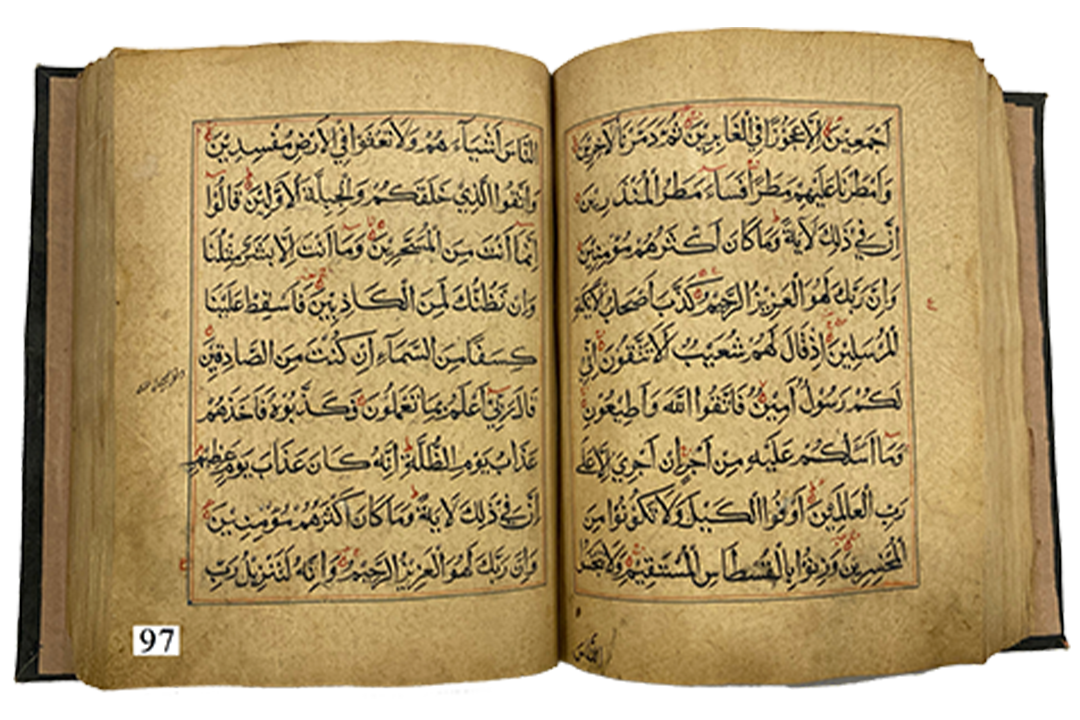 أَجْمَعِينَ إِلَّا عَجُوزًا فِي الْغَابِرِينَ ثُمَّ دَمَّرْنَا الْآخَرِينَ
وَأَمْطَرْنَا عَلَيْهِمْ مَطَرًا فَسَاءَ مَطَرُ الْمُنْذَرِينَ
إِنَّ فِي ذَلِكَ لَآيَةً وَمَا كَانَ أَكْثَرُهُمْ مُؤْمِنِينَ
وَإِنَّ رَبَّكَ لَهُوَ الْعَزِيزُ الرَّحِيمُ كَذَّبَ أَصْحَابُ لْأَيْكَةِ
الْمُرْسَلِينَ إِذْ قَالَ لَهُمْ شُعَيْبٌ أَلَا تَتَّقُونَ إِنِّي
لَكُمْ رَسُولٌ أَمِينٌ فَاتَّقُوا اللَّهَ وَأَطِيعُونِ
وَمَا أَسْأَلُكُمْ عَلَيْهِ مِنْ أَجْرٍ إِنْ أَجْرِيَ إِلَّا عَلَى
رَبِّ الْعَالَمِينَ أَوْفُوا الْكَيْلَ وَلَا تَكُونُوا مِنَ
الْمُخْسِرِينَ وَزِنُوا بِالْقِسْطَاسِ الْمُسْتَقِيمِ وَلَا تَبْخَسُوا
النَّاسَ
النَّاسَ أَشْيَاءَهُمْ وَلَا تَعْثَوْا فِي الْأَرْضِ مُفْسِدِينَ
وَاتَّقُوا الَّذِي خَلَقَكُمْ وَالْجِبِلَّةَ الْأَوَّلِينَ قَالُوا
إِنَّمَا أَنْتَ مِنَ الْمُسَحَّرِينَ وَمَا أَنْتَ إِلَّا بَشَرٌ مِثْلُنَا
وَإِنْ نَظُنُّكَ لَمِنَ الْكَاذِبِينَ فَأَسْقِطْ عَلَيْنَا
كِسَفًا مِنَ السَّمَاءِ إِنْ كُنْتَ مِنَ الصَّادِقِينَ
قَالَ رَبِّي أَعْلَمُ بِمَا تَعْمَلُونَ فَكَذَّبُوهُ فَأَخَذَهُمْ
عَذَابُ يَوْمِ الظُّلَّةِ إِنَّهُ كَانَ عَذَابَ يَوْمٍ عَظِيمٍ
إِنَّ فِي ذَلِكَ لَآيَةً وَمَا كَانَ أَكْثَرُهُمْ مُؤْمِنِينَ
وَإِنَّ رَبَّكَ لَهُوَ الْعَزِيزُ الرَّحِيمُ وَإِنَّهُ لَتَنْزِيلُ رَبِّ
97